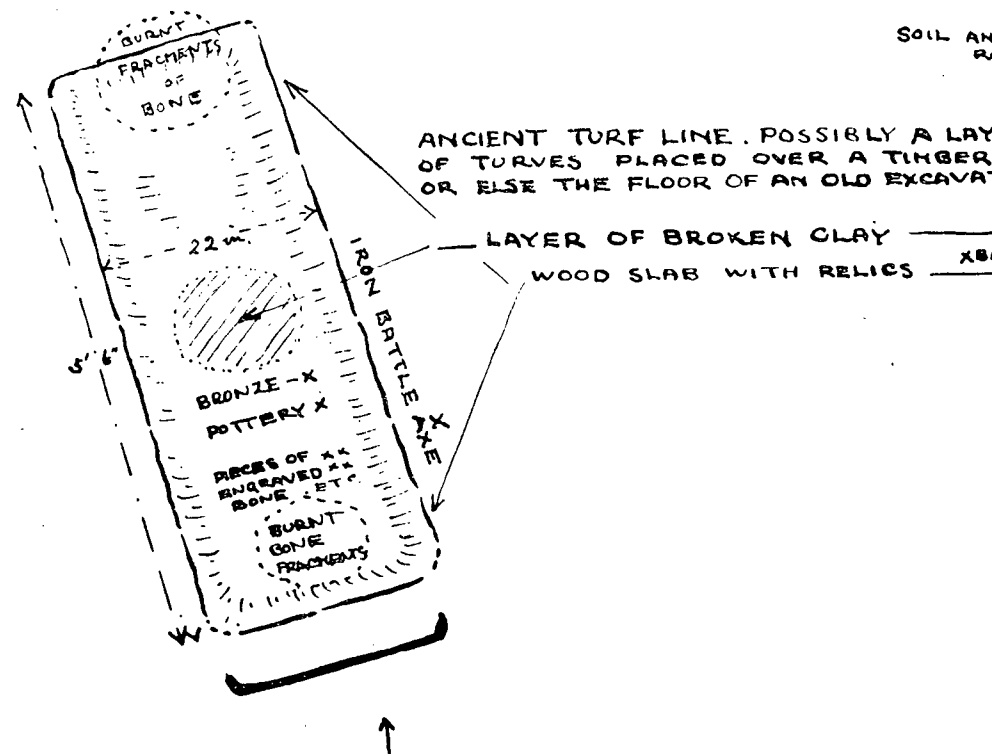 SOIL AN
R
BURNT
FRAGMENTS
OF
BONE
ANCIENT TURF LINE. POSSIBLY A LAY
OF TURVES PLACED OVER A TIMBER
OR ELSE THE FLOOR OF AN OLD EXCAVAT
22 in.
LAYER OF BROKEN CLAY
WOOD SLAB WITH RELICS
IRON BATTLE X AXE
5' 6"
BRONZE - X
POTTERY X
PIECES OF XX
ENGRAVED XX
BONE ETC
BURNT
BONE
FRAGMENTS